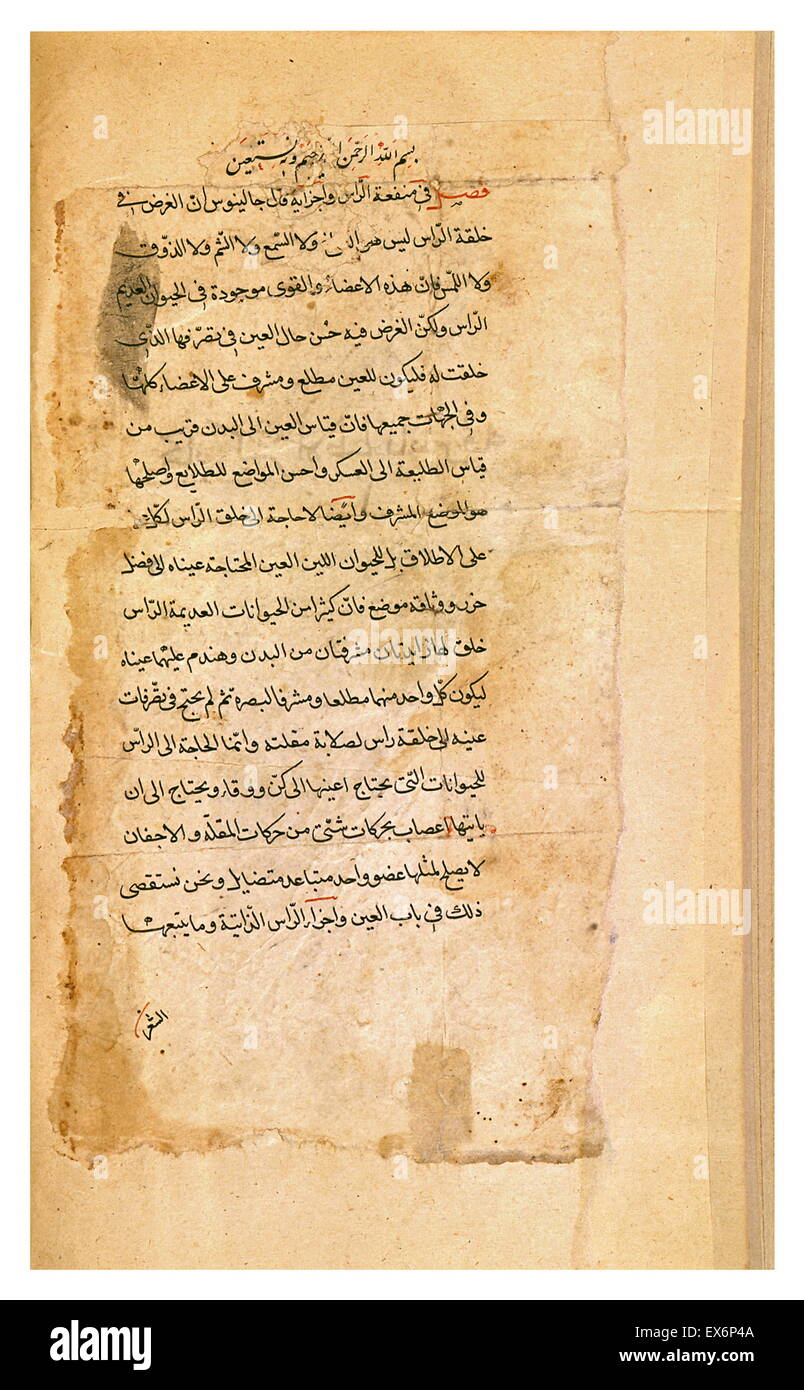 بسم الله الرحمن الرحيم وبه نستعين
فصل في منفعة الرّاس واجزايه قال جالينوس انّ الغرض في
خلقة الرّاس ليس هو ولا السّمع ولا الشّم ولا الذوق
ولا اللمس فانّ هذه الاعضاء والقوى موجودة في الحيوان العديم
الرّاس ولكنّ الغرض فيه حسن حال العين في تصرّفها الذّي
خلقت له فليكون للعين مطلع ومشرف على الاعضاء كلها
وفي الجهات جميعها فانّ قياس العين الى البدن قريب من
قياس الطليعة الى العسكر واحسن المواضع للطلايع واصلحها
هو الموضع المشرف وايضا لا حاجة الى خلق الرّاس لكل
على الاطلاق بل للحيوان اللين العين المحتاجة عيناه الى فضل
حرز ووثاقة موضع فانّ كثيرا من الحيوانات العديمة الرّاس
خلق لها مشرفتان من البدن وهندم عليهما عيناه
ليكون كلّ واحد منهما مطلعا ومشرفا لبصره ثم لم يحتج في تصرّفات
عينه الى خلقة راس لصلابة مقلته وانّما الحاجة الى الرّاس
للحيوانات التّي يحتاج اعينها الى كنّ ووقاء ويحتاج الى ان
ياتيها اعصاب بحركات شتّى من حركات المقلة والاجفان
لا يصلح لمثلها عضو واحد متباعد متضايل ونحن نستقصى
ذلك في باب العين واجزاء الرّاس الذّاتية وما يتبعها
الشعر
alamy
alamy
alamy
alamy
Image ID: EX6P4A
www.alamy.com